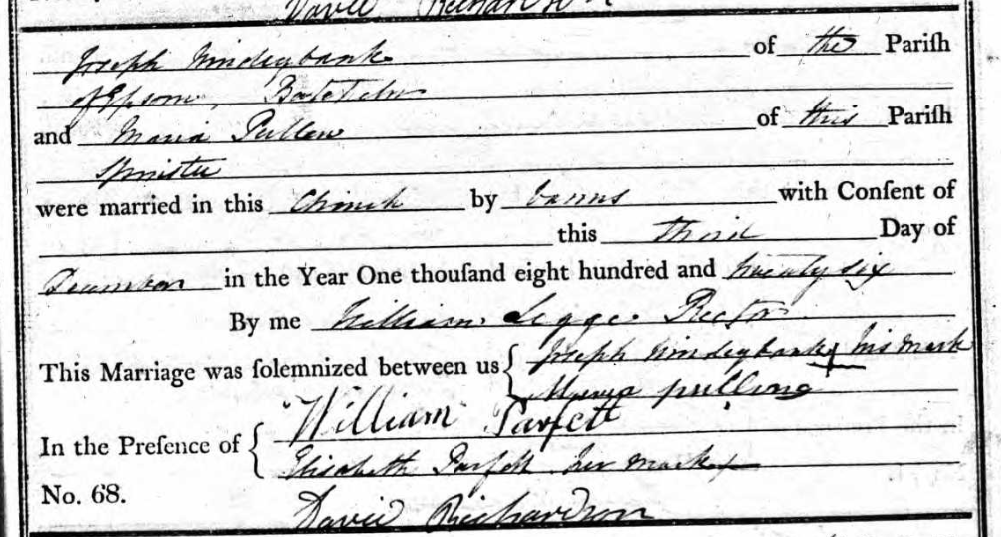 David Richardson
Joseph Windeybank of the Pariſh
of Epsom, Batchelor
and Maria Pullen of this Pariſh
Spinster
were married in this Church by banns with Conſent of
this third Day of
December in the Year One thouſand eight hundred and twenty six
By me William Legge Rector
This Marriage was ſolemnized between us { Joseph Windeybank X his mark
pulling
In the Preſence of { William Parfett
Elisabeth Parfett her mark X
No. 68.
David Richardson